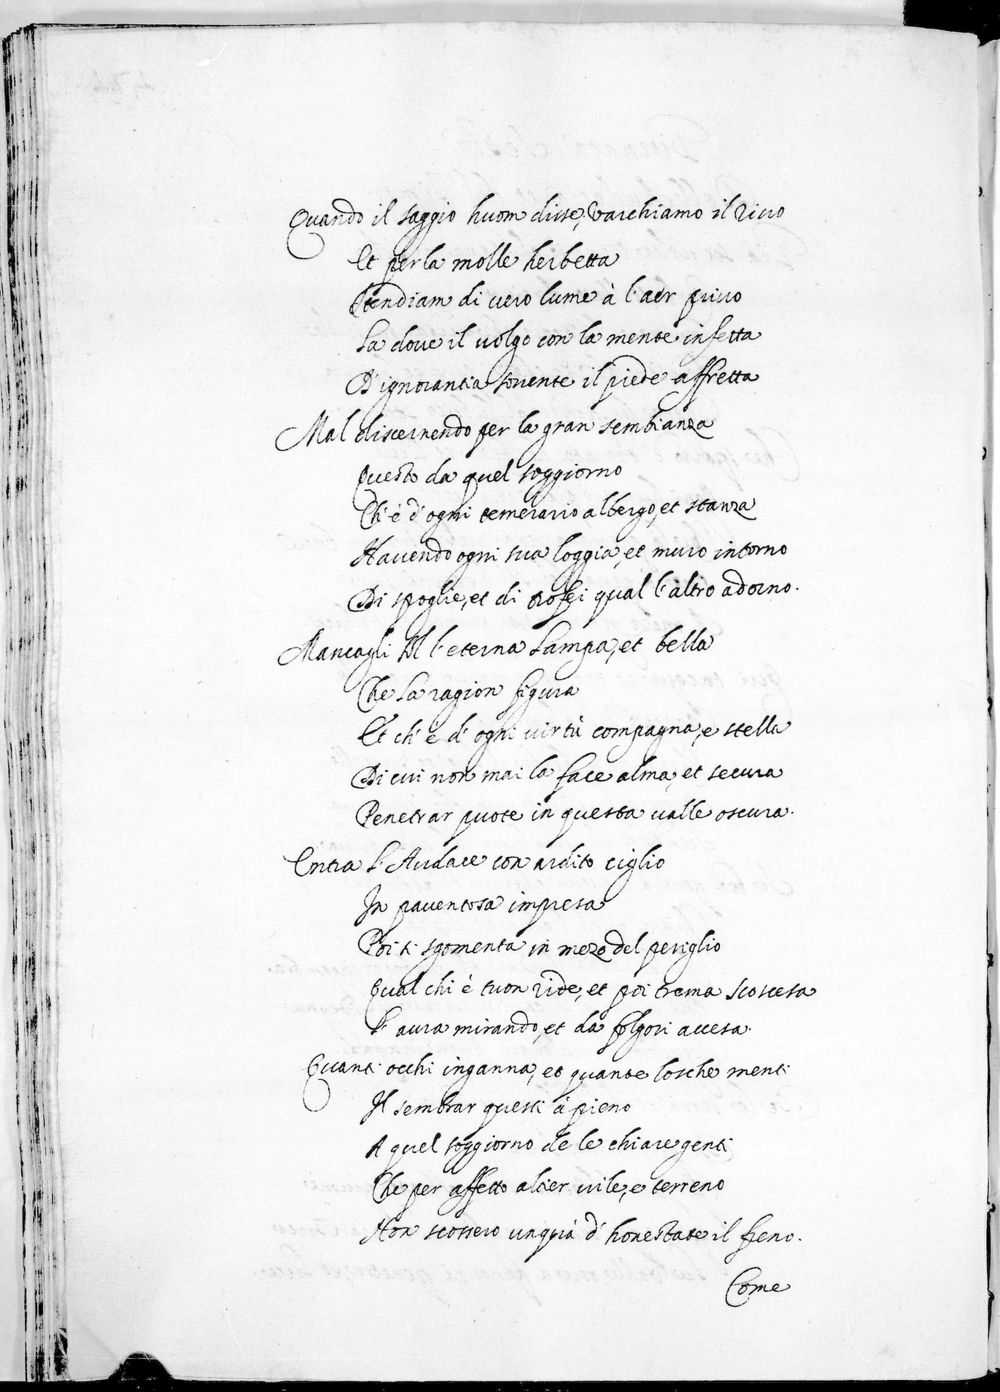 Quando il saggio huom disse, Varchiamo il Rivo
Et per la molle herbetta
Stendiam di vero lume à l'aer privo
La dove il volgo con la mente infetta
D'ignorantia sovente il piede affretta
Mal discernendo per la gran sembianza
Questo da quel soggiorno
Ch'è d'ogni temerario albergo, et stanza
Havendo ogni sua loggia, et muro intorno
Di spoglie, et di trofei qual l'altro adorno.
Mancagli sol l'eterna Lampa, et bella
Che la ragion figura
Et ch'è d'ogni virtù compagna, e stella
Di cui non mai la face alma, et secura
Penetrar puote in questa valle oscura.
Entra l'Audace con ardito ciglio
In paventosa impresa
Poi si sgomenta in mezo del periglio
Qual chi è tuon ride, et poi trema scoscesa
L'aura mirando, et da folgori accesa.
Quanti occhi inganna, et quante losche menti
Il sembrar questi à pieno
A quel soggiorno de le chiare genti
Che per affetto altier vile, e terreno
Non scossero unquà d'honestate il freno.
Come